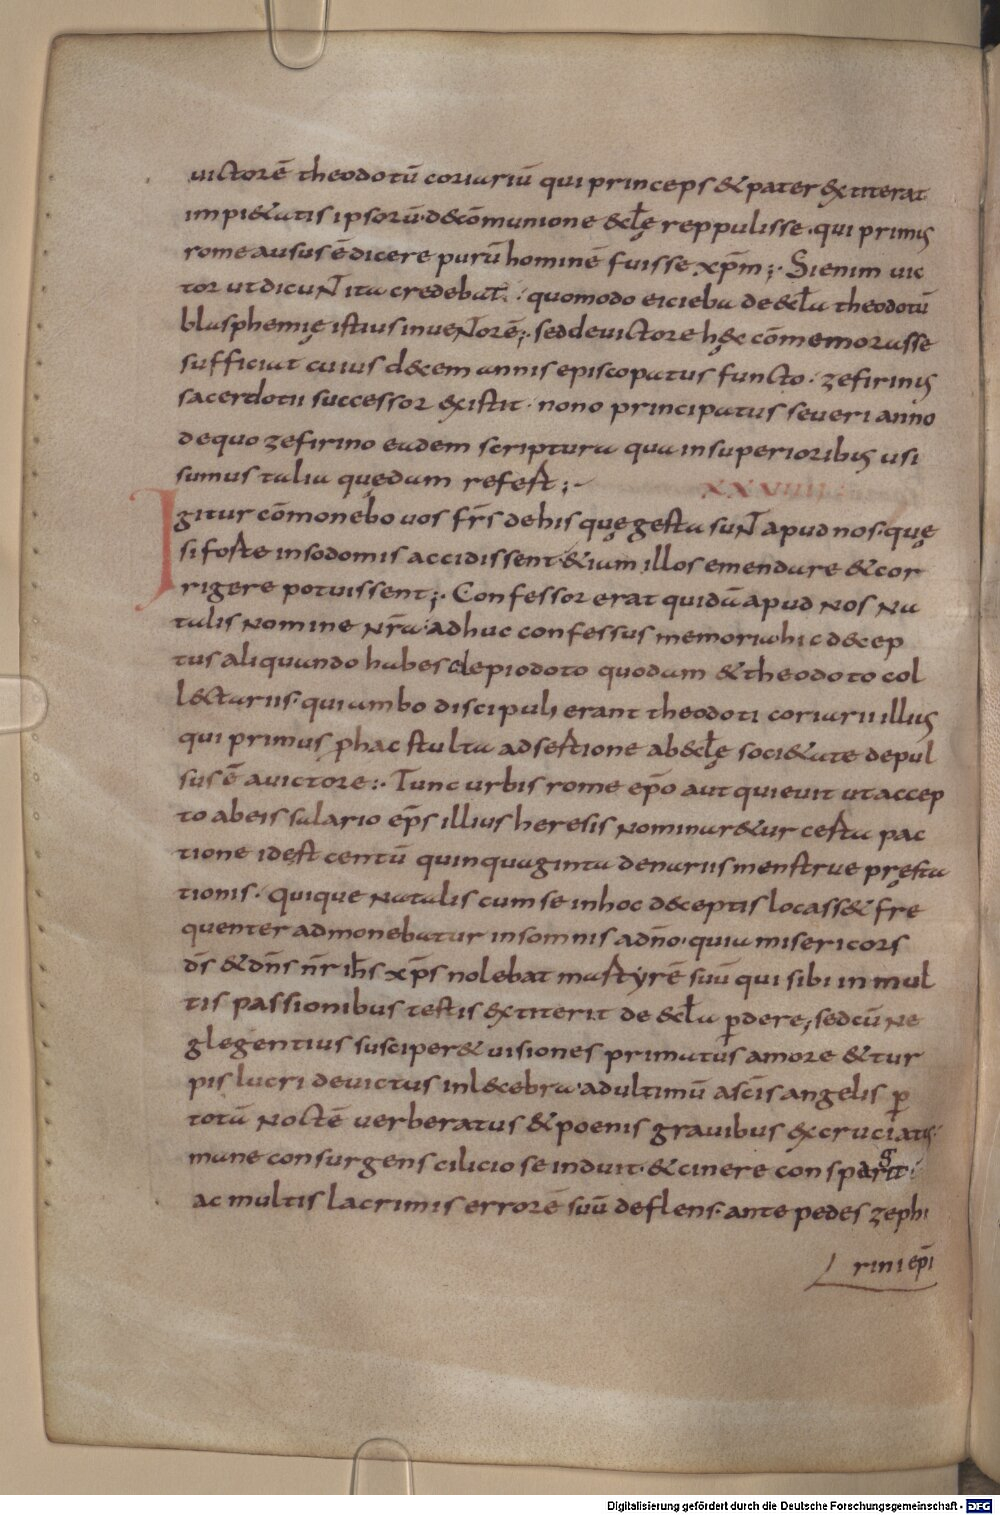 uictorē theodotū coriariū qui princeps & pater extiterat
impi&atis ipsorū·d&cōmunione &cłę reppulisse·qui primꝰ
rome ausus ē dicere purū hominē fuisse xp̄m;· Si enim uic
tor ut dicunt ita credebat· quomodo eicieba de &cła theodotū
blasphemię istius inuentorē;· sed de uictore hęc cōmemorasse
sufficiat cuius d&cem annis episcopatus functo· zefirinꝰ
sacerdotii successor existit· nono principatus seueri anno
de quo zefirino eadem scriptura qua in superioribꝰ usi
sumus talia quędam refert;·
XXVIIII
Igitur cōmonebo uos fr̄s de his quę gesta sunt apud nos·quę
si forte in sodomis accidissent &iam illos emendare & cor
rigere potuissent;· Confessor erat quidā apud nos na
talis nomine nr̄a adhuc confessus memoria hic d&cep
tus aliquando habes clepiodoto quodam & theodoto col
l&ctariis·qui ambo discipuli erant theodoti coriarii illiꝰ
qui primus p̱ hac stulta adsertione ab &cłę soci&ate depul
sus ē a uictore:· Tunc urbis rome ep̄o aut quieuit ut accep
to ab eis salario ep̄s illius heresis nominar&ur certa pac
tione id est centū quinquaginta denariis menstrue pręsta
tionis· Quique natalis cum se in hoc d&ceptis locass& fre
quenter admonebatur in somnis a dn̄o·quia misericors
d̄s & dn̄s n̄r ih̄s xp̄s nolebat martyrē suū qui sibi in mul
tis passionibus testis extiterit de &cła p̱dere; sed cū ne
glegentius susciper& uisiones primatus amore & tur
pis lucri deuictus inl&cebra·ad ultimū a sc̄is angelis p̱
totū noctē uerberatus & poenis grauibus excruciatꝰ·
mane consurgens cilicio se induit·& cinere conspargit·
ac multis lacrimis errorē suū deflens·ante pedes zephi
rini ep̄i
Digitalisierung gefördert durch die Deutsche Forschungsgemeinschaft - DFG